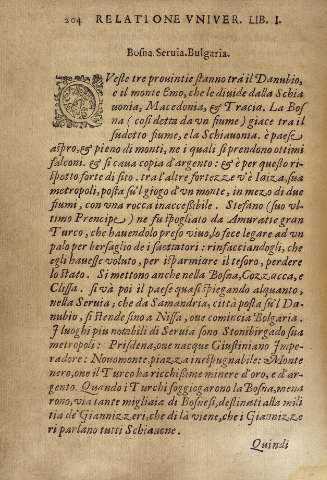 204 RELATIONE VNIVER. LIB. I.
Bosna. Seruia. Bulgaria.
QVeste tre prouintie stanno trà il Danubio,
e il monte Emo, che le diuide dalla Schia
uonia, Macedonia, & Tracia. La Bos
na (così detta da vn fiume) giace tra il
sudetto fiume, e la Schiauonia. è paese
aspro, & pieno di monti, ne i quali si prendono ottimi
falconi. & si caua copia d'argento: & è per questo ri-
spetto forte di sito. tra l'altre fortezze v'è Iaiza, sua
metropoli, posta su'l giogo d'vn monte, in mezo di due
fiumi, con vna rocca inaccessibile. Stefano (suo vl-
timo Prencipe) ne fu spogliato da Amuratte gran
Turco, che hauendolo preso viuo, lo fece legare ad vn
palo per bersaglio de i saettatori: rinfacciandogli, che
egli hauesse voluto, per isparmiare il tesoro, perdere
lo stato. Si mettono anche nella Bosna, Cozzacca, e
Clissa. si và poi il paese quasi spiegando alquanto,
nella Seruia, che da Samandria, città posta su'l Da-
nubio, si stende fino a Nissa, oue comincia Bolgaria.
I luoghi piu notabili di Seruia sono Stonibirgado sua
metropoli: Prisdena, oue nacque Giustiniano Impe-
radore: Nouomonte, piazza inespugnabile: Monte
nero, oue il Turco ha ricchissime minere d'oro, e d'ar-
gento. Quando i Turchi soggiogarono la Bosna, mena
rono, via tante migliaia di Bosnesi, destinati alla mili
tia de' Giannizzeri, che di là viene, che i Giannizze
ri parlano tutti Schiauone.
Quindi